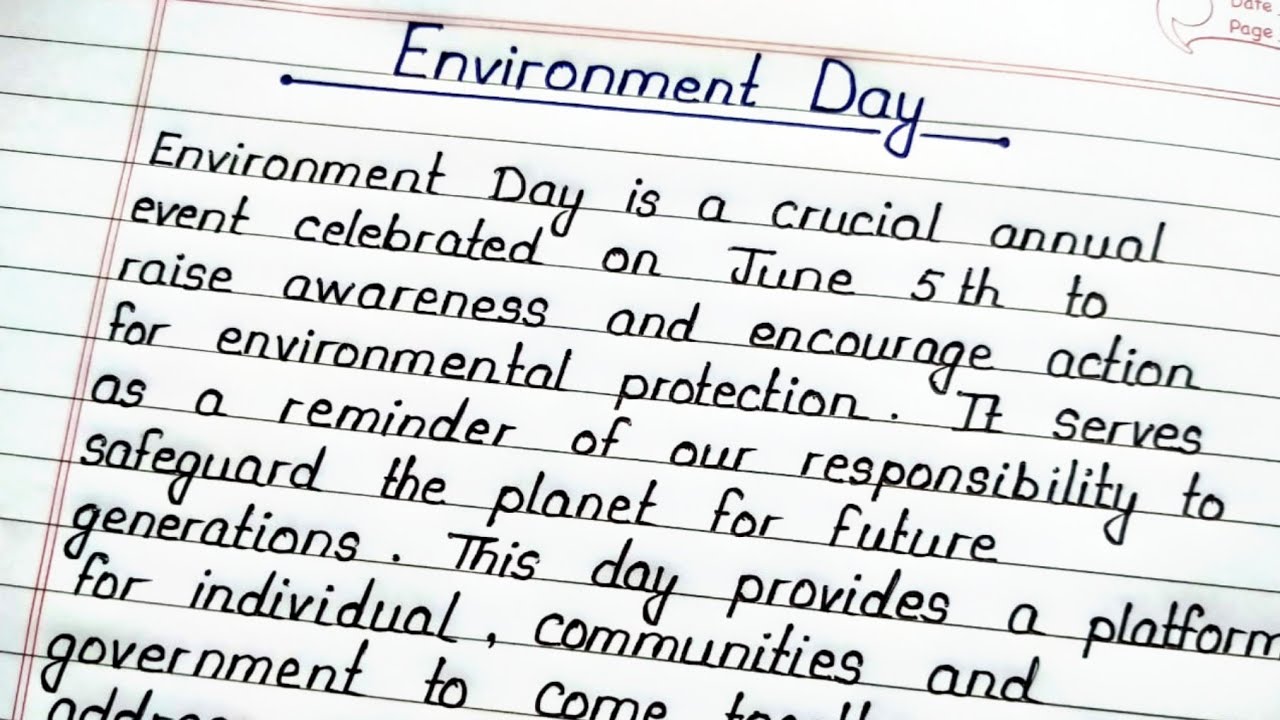 Date
Page
Environment Day
Environment Day is a crucial annual
event celebrated on June 5th to
raise awareness and encourage action
for environmental protection. It serves
as a reminder of our responsibility to
safeguard the planet for future
generations. This day provides a platform
for individual, communities and
government to come